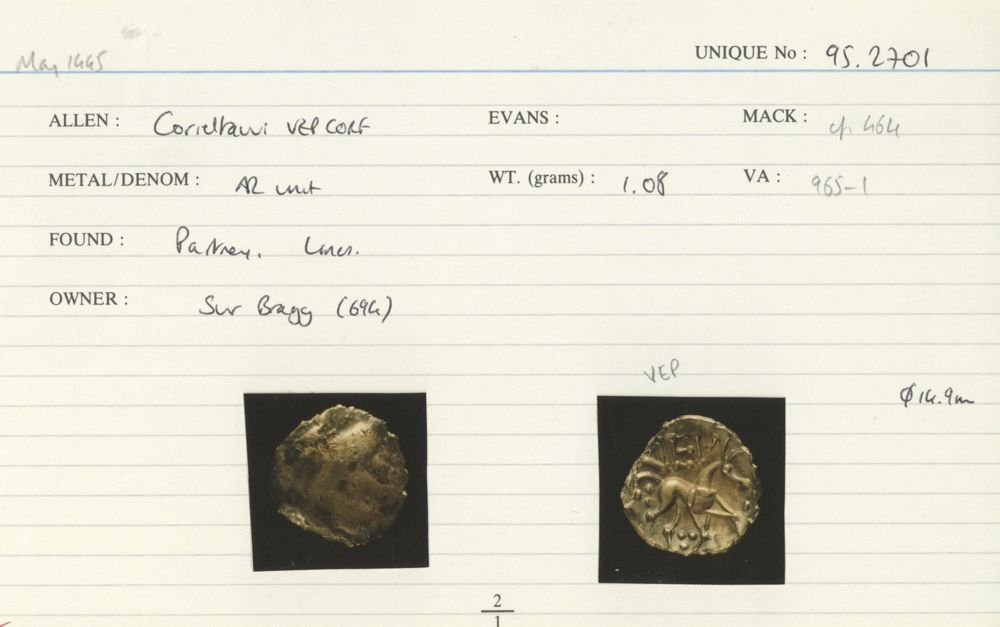 May 1995
UNIQUE No : 95.2701
ALLEN : Corieltauvi VEP CORF EVANS : MACK : cf. 464
METAL/DENOM : AR unit WT. (grams) : 1.08 VA : 965-1
FOUND : Partney, Lincs.
OWNER : Bragg (694)
VEP
Ø 14.9mm
2
1